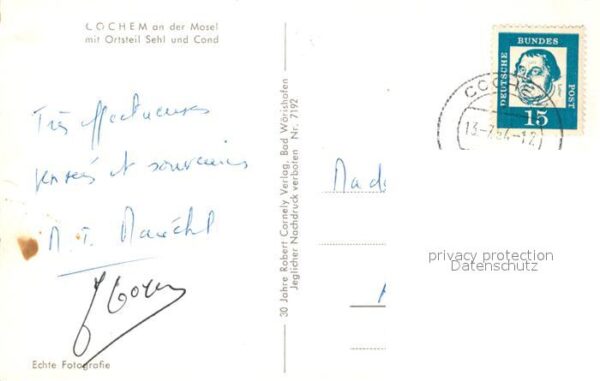 COCHEM an der Mosel
mit Ortsteil Sehl und Cond
Très affectueuses
pensées et souvenirs
M. T. Maréchal
30 Jahre Robert Cornely Verlag, Bad Wörishofen
Jeglicher Nachdruck verboten Nr. 7192
Echte Fotografie
DEUTSCHE
BUNDES
POST
15
COCHE
Mada
privacy protection
Datenschutz